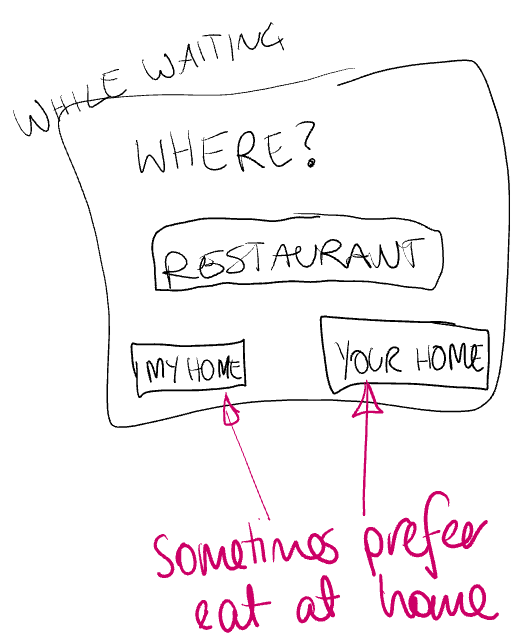 WHILE WAITING
WHERE?
RESTAURANT
MY HOME
YOUR HOME
Sometimes prefer
eat at home